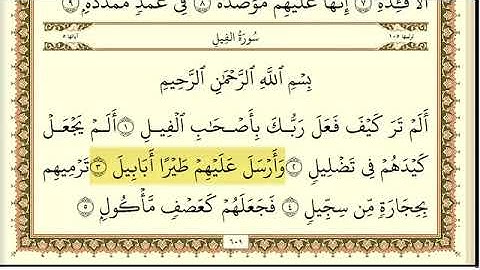 ٱلْأَفْـِٔدَةِ ۝٧ إِنَّهَا عَلَيْهِم مُّؤْصَدَةٌ ۝٨ فِي عَمَدٍ مُّمَدَّدَةٍۭ ۝٩
ترتيبها ١٠٥ سُورَةُ الفِيلِ آياتها ٥
بِسْمِ ٱللَّهِ ٱلرَّحْمَٰنِ ٱلرَّحِيمِ
أَلَمْ تَرَ كَيْفَ فَعَلَ رَبُّكَ بِأَصْحَٰبِ ٱلْفِيلِ ۝١ أَلَمْ يَجْعَلْ
كَيْدَهُمْ فِي تَضْلِيلٍ ۝٢ وَأَرْسَلَ عَلَيْهِمْ طَيْرًا أَبَابِيلَ ۝٣ تَرْمِيهِم
بِحِجَارَةٍ مِّن سِجِّيلٍ ۝٤ فَجَعَلَهُمْ كَعَصْفٍ مَّأْكُولٍۭ ۝٥
٦٠١